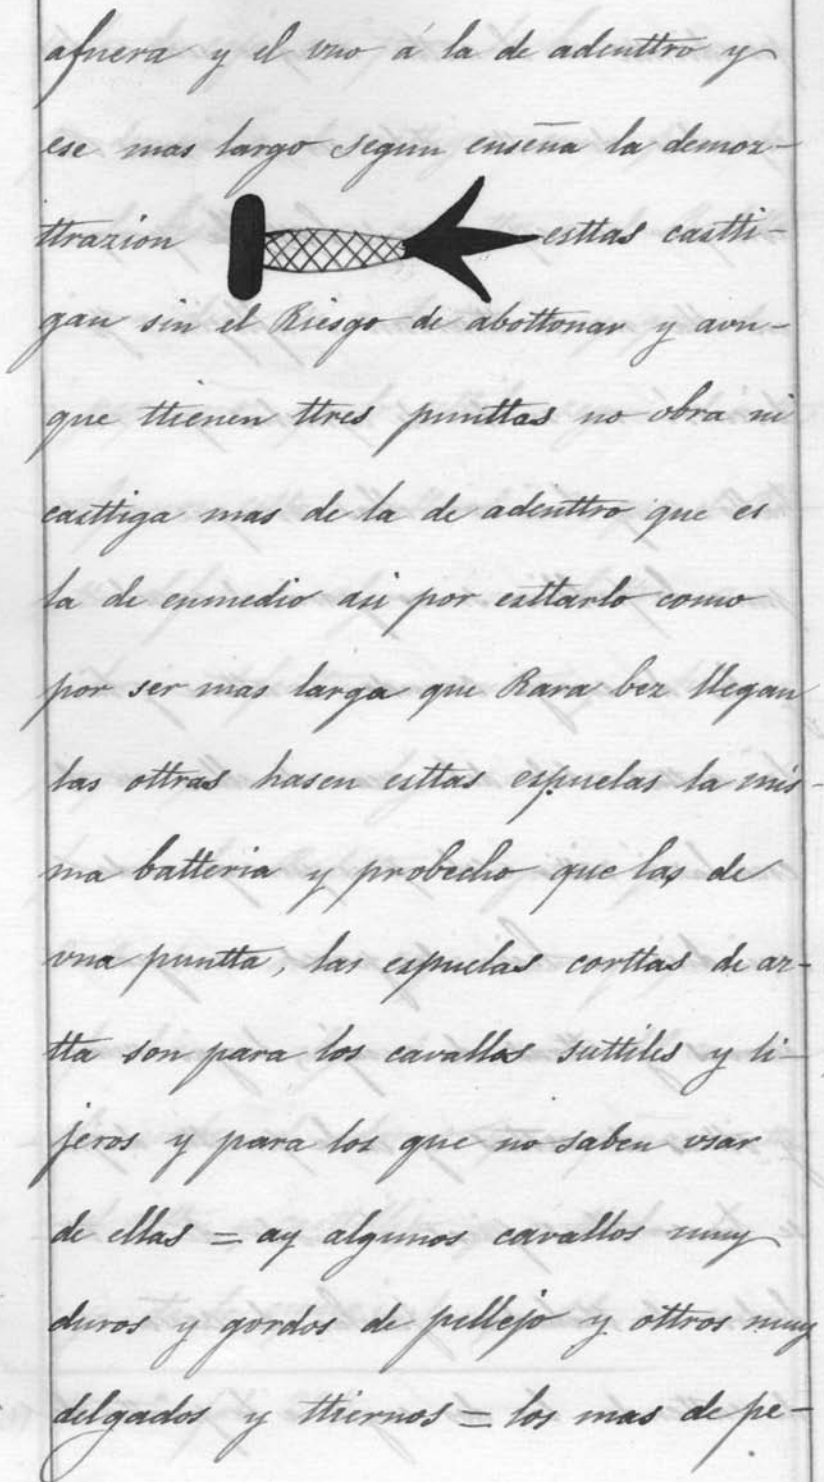 afuera y el vno á la de adenttro y
ese mas largo segun enseña la demoz-
ttrazion esttas castti-
gan sin el Riesgo de abottonar y avn-
que ttienen ttres punttas no obra ni
casttiga mas de la de adenttro que es
la de enmedio asi por esttarlo como
por ser mas larga que Rara bez llegan
las ottras hasen esttas espuelas la mis-
ma batteria y probecho que las de
vna puntta, las espuelas corttas de as-
tta son para los cavallos suttiles y li-
jeros y para los que no saben vsar
de ellas = ay algunos cavallos muy
duros y gordos de pellejo y ottros muy
delgados y ttiernos = los mas de pe-